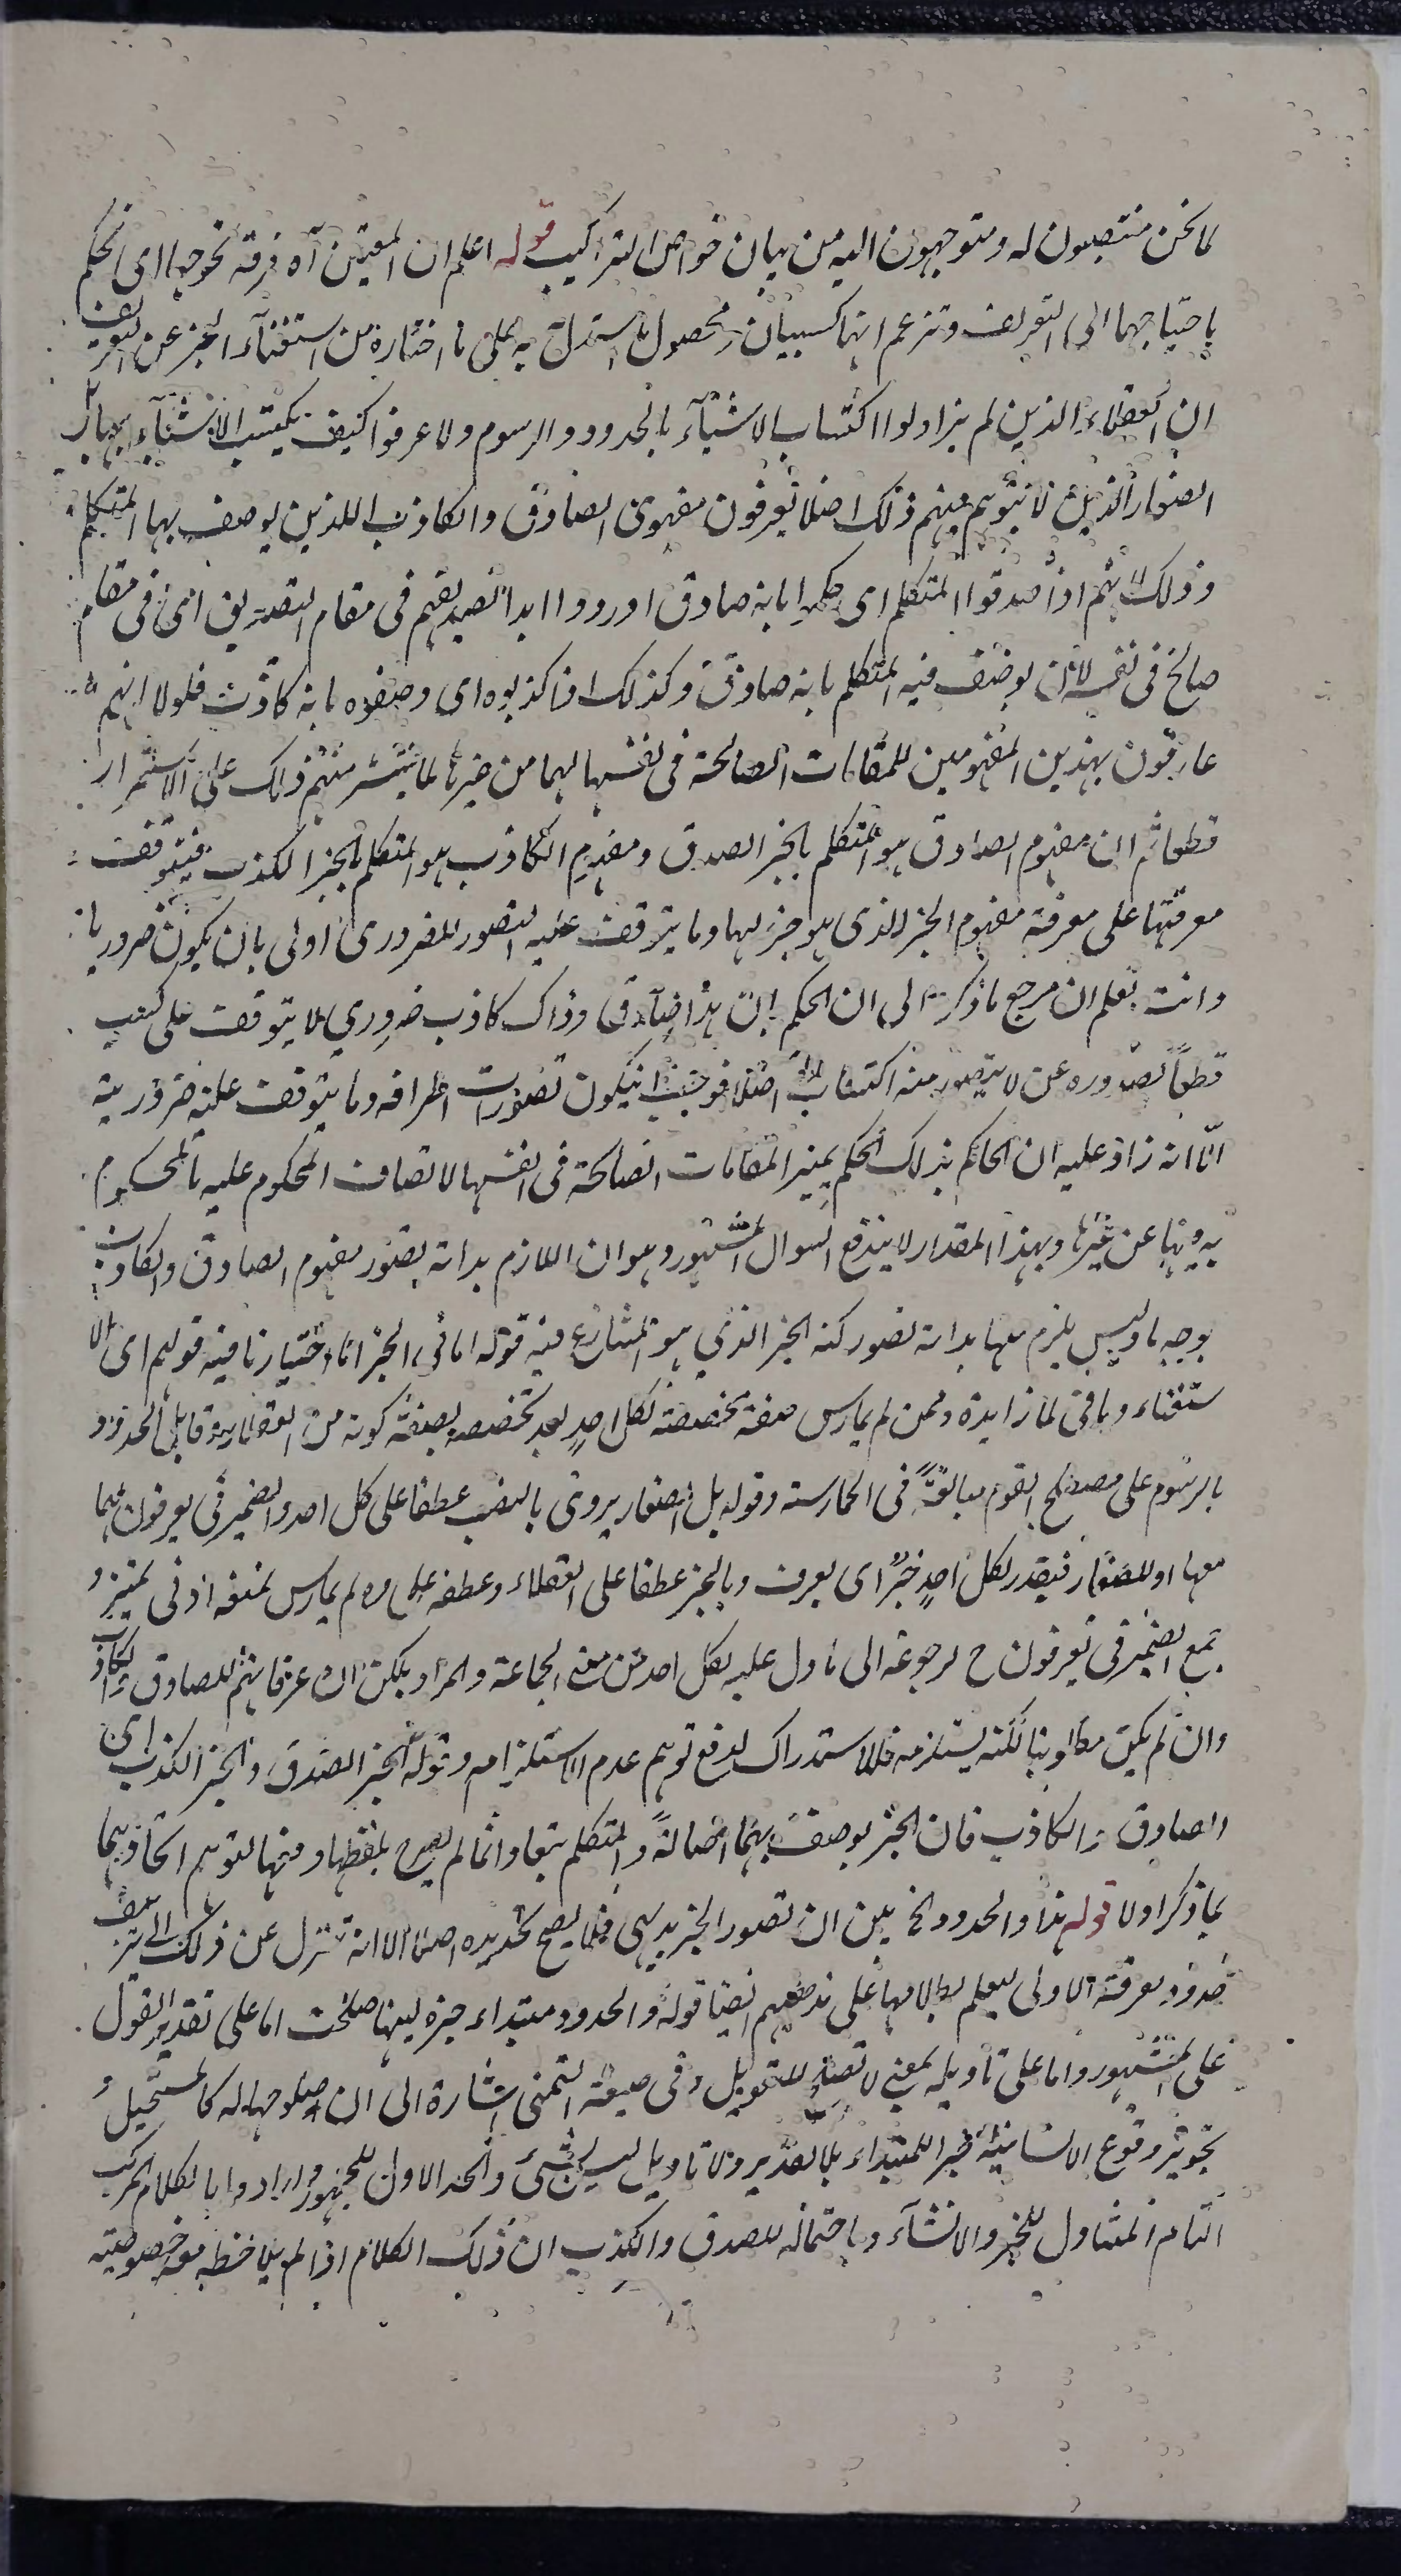 لما نحن منتصبون له ومتوجهون اليه من بيان خواص التراكيب قوله اعلم ان المعتنين آه فرقة تحوجهما اى الحكم
باحتياجهما الى التعريف وتزعم انهما كسبيان ومحصول ما استدل به على ما اختاره من استغناء الخبر عن التعريف
ان العقلاء الذين لم يزاولوا اكتساب الاشياء بالحدود والرسوم ولا عرفوا كيف تكتسب الاشياء بها بل
الصغار الذين لا يتوهم منهم ذلك اصلا يعرفون مفهومى الصادق والكاذب اللذين يوصف بهما المتكلم
وذلك لانهم اذا صدقوا المتكلم اى حكموا بانه صادق اوردوا ابدا تصديقهم فى مقام التصديق اى فى مقام
صالح فى نفسه لان يوصف فيه المتكلم بانه صادق وكذلك اذا كذبوه اى وصفوه بانه كاذب فلولا انهم
عارفون بهذين المفهومين للمقامات الصالحة فى نفسها لهما من غيرها لما يتيسر منهم ذلك على الاستمرار
قطعا ثم ان مفهوم الصادق هو المتكلم بالخبر الصدق ومفهوم الكاذب هو المتكلم بالخبر الكذب فيتوقف
معرفتهما على معرفة مفهوم الخبر الذى هو جزء لهما وما يتوقف عليه التصور الضرورى اولى بان يكون ضروريا
وانت تعلم ان مرجع ما ذكره الى ان الحكم بان هذا صادق وذاك كاذب ضرورى لا يتوقف على كسب
قطعاً لصدوره عمن لا يتصور منه اكتساب اصلا فوجب ان يكون تصورات اطرافه وما يتوقف عليه ضرورية
الّا انه زاد عليه ان الحاكم بذلك الحكم يميز المقامات الصالحة فى انفسها لاتصاف المحكوم عليه بالمحكوم
به فيها عن غيرها وبهذا المقدار لا يندفع السوال المشهور وهو ان اللازم بداهة تصور مفهوم الصادق والكاذب
بوجه ما وليس يلزم منها بداهة تصور كنه الخبر الذى هو المتنازع فيه قوله اما فى الخبر اى اختيارنا فيه قولهم اى الا
ستغناء وما فى لما زايدة وممن لم يمارس صفة مخصصة لكل احد بعد تخصصه بصفة كونه من العقلاء وقابل الحدود
بالرسوم على مصطلح القوم مبالغةً فى الممارسة وقوله بل الصغار يروى بالنصب عطفا على كل احد والضمير فى يعرفون لهما
معها او للصغار فيقدر لكل احد خبرٌ اى يعرف وبالجر عطفا على العقلاء وعطفه على من لم يمارس يمنعه ادنى تمييز و
جمع الضمير فى يعرفون ح لرجوعه الى ما دل عليه كل احد من معنى الجماعة والمراد بلكن ان عرفانهم للصادق والكاذب
وان لم يكن مطلوبنا لكنه يستلزمه فالاستدراك لدفع توهم عدم الاستلزام وقوله الخبر الصدق والخبر الكذب اى
الصادق والكاذب فان الخبر يوصف بهما اصالةً والمتكلم تبعا وانما لم يصرح بلفظهما دفعا لتوهم اتحادهما
بما ذكر اولا قوله هذا والحدود الخ بين ان تصور الخبر بديهى فلا يصح تحديده اصلا الا انه تنزل عن ذلك الى تز يف
حدود معرفته الاولى ليعلم بطلانها على مذهبهم ايضا قوله والحدود مبتداء خبره ليتها صلحت اما على تقدير القول
على المشهور واما على تأويله بمعنى لا تصلح للتعويل وفى صيغة التمنى اشارة الى ان صلوحها له كالمستحيل و
تجويز وقوع الانشائية خبرا للمبتداء بلا تقدير ولا تاويل ليس بشئ والحد الاول للجمهور وارادوا بالكلام المركب
التام المتناول للخبر والانشاء وباحتماله للصدق والكذب ان ذلك الكلام اذا لم يلاحظ معه خصوصيته